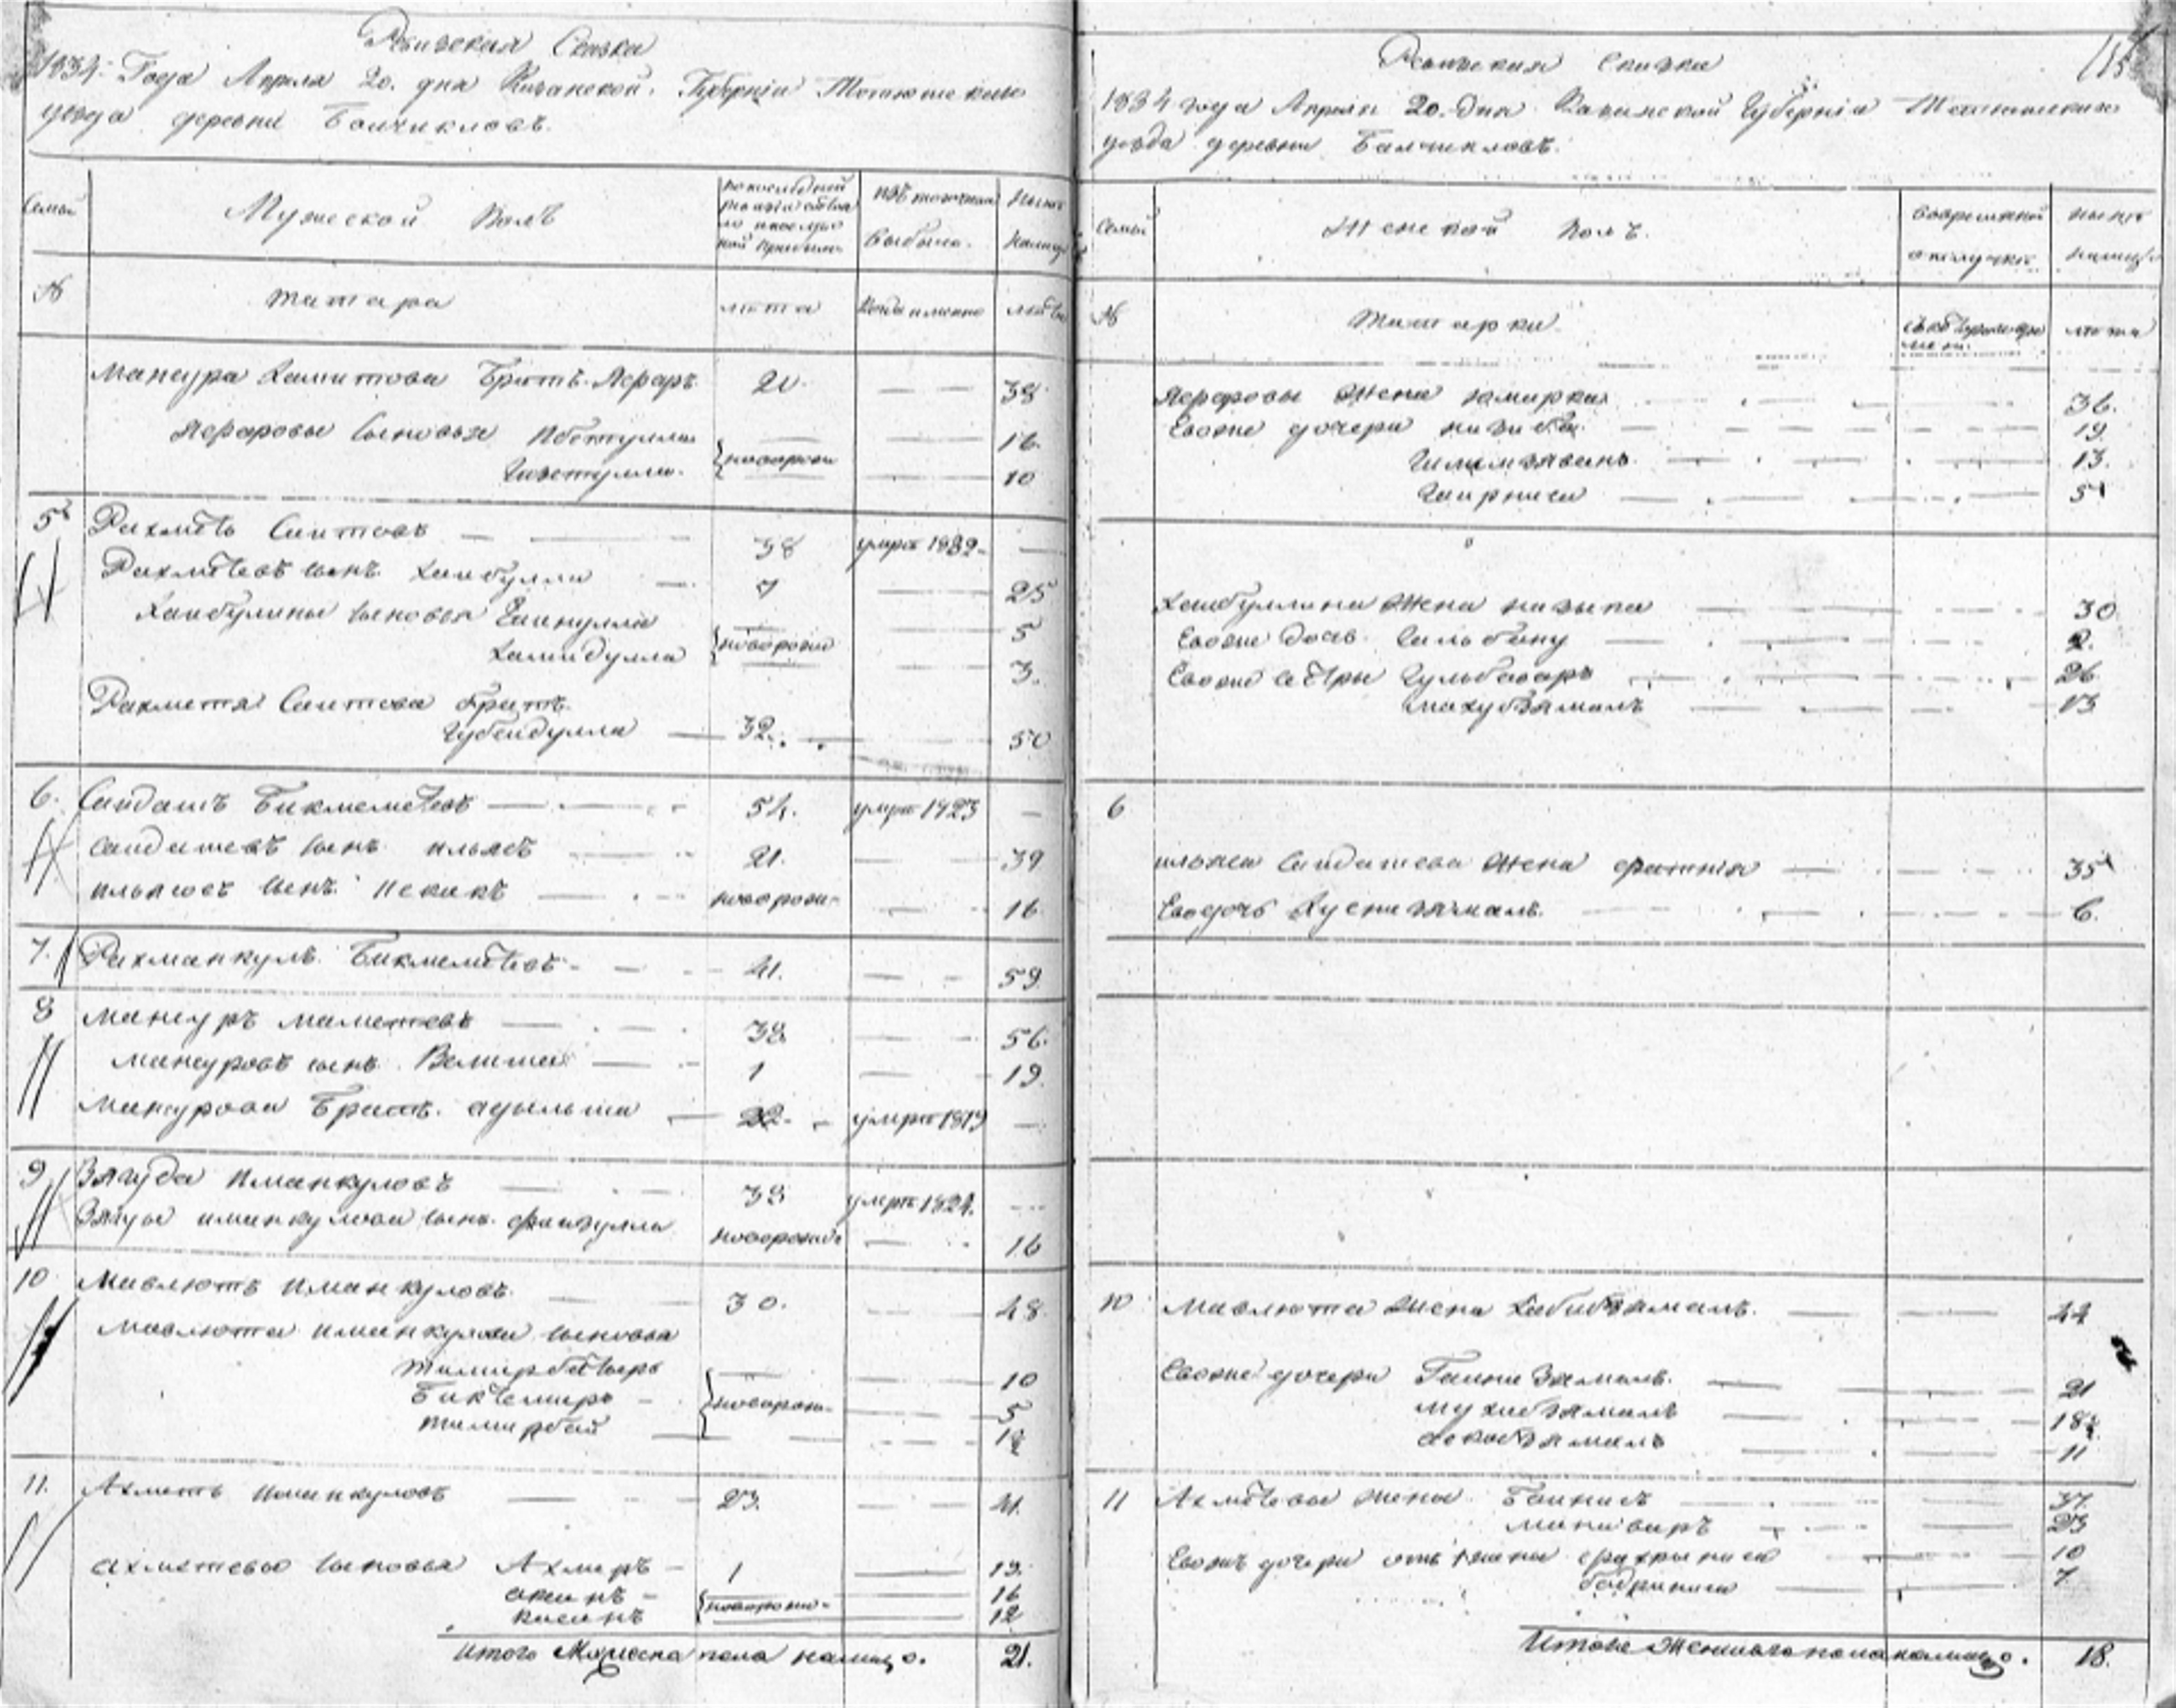 Ревизская Сказка
1834 Года Апреля 20. дня Казанской Губернiи Тетюшскаго
уезда деревни Балчикловъ.
Семьи
Мужеской Полъ
по последней ревизiи
изъ того числа выбыло.
Ныне налицо
№
татара
лета
Когда именно
лета
Мансура Хамитова Братъ Асфаръ 20 38
Асфаровы сыновья 16
новорожд
10
5 Рахметь Сеитовъ 38 умре 1832 —
Рахметевъ сынъ Хайбулла 7 25
Хайбулины сыновья Гайнулла 5
новорожд
Хамидулла 3.
Рахметя Сеитова братъ
Губейдулла 32. 50
6. Сайдашъ Бикмеметевъ 54. умре 1823 —
Сайдашевъ сынъ ильясъ 21. 39
ильясовъ сынъ Исхакъ новорож 16
7. Рахманкулъ Бикмеметевъ 41. 59.
8 Мансуръ Маметевъ 38 56.
Мансуровъ сынъ Велиша 1 19.
Мансурова Братъ адыльша 22. умре 1819 —
9 Зягуда Иманкуловъ 38 умре 1824.
Зягуды иманкулова сынъ файзулла новорожд 16
10 Мавлютъ Иманкуловъ 30. 48
Мавлюта иманкулова сыновья
тимирбектирь 10
Биктемиръ новорож 5
тимирбай 1½
11. Ахметь Иманкуловъ 23. 41.
Ахметевы сыновья Ахмеръ 1 19.
16
новорож
12
Итого Мужеска пола налицо. 21.
Ревизская Сказка
1834 года Апреля 20. дня Казанской Губернiи Тетюшскаго
уезда деревни Балчикловъ.
Семьи
Женской Полъ.
Во временной отлучке
ныне налицо
№
Татарки
лета
Асфаровы Жена Юмирка 36.
Евоже дочери назиба 19
13.
5
Хайбуллина Жена назыпа 30
Евоже дочь Гильбану 2.
Евоже сестры Гульбагаръ 26
Махубзямалъ 13
6
ильяса Сайдашева Жена фатиха 35
Его дочь Хуснизямалъ. 6.
10 Мавлюта Жена Хабибзямалъ. 44
Евоже дочери Гайнизямалъ. 21
Мухибзямалъ 18½
11
11 Ахметевы жены 37.
Маниваръ 23
Евоже дочери отъ 1 жены фахрыниса 10
бадриниса 7.
Итого Женскаго пола налицо. 18.